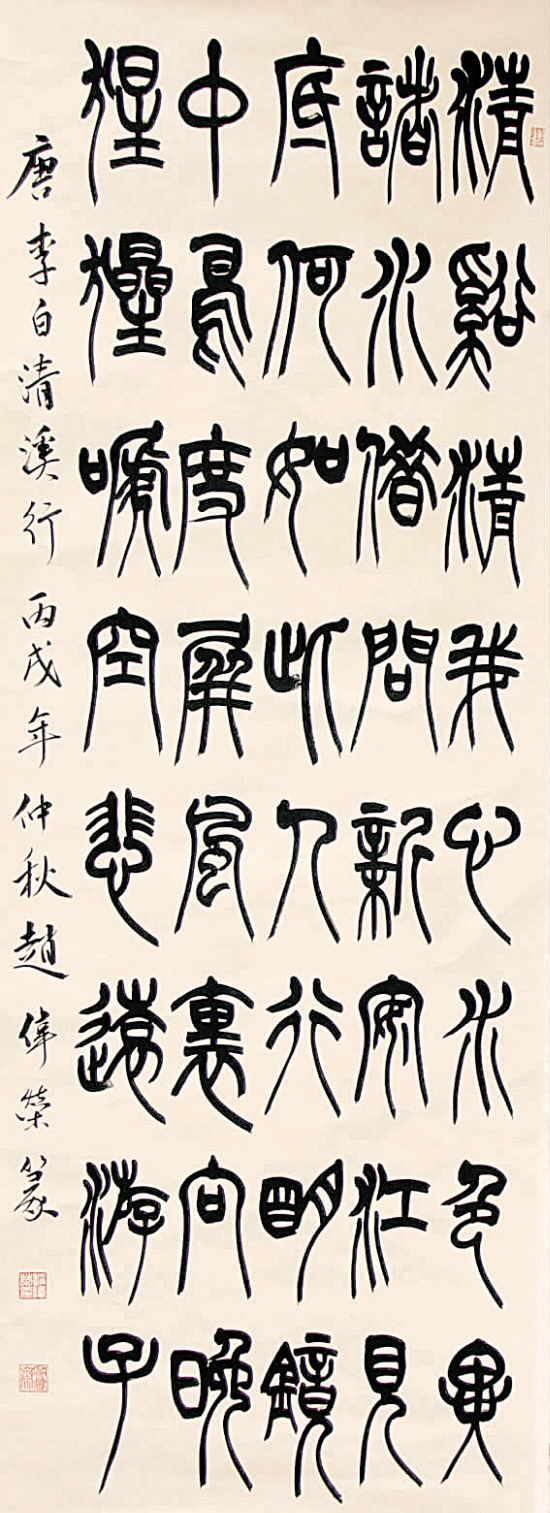 清谿清我心水色異
諸水借問新安江見
底何如此人行明鏡
中鳥度屏風裏向晚
猩猩喚空悲遠游子
唐李白清溪行丙戌年仲秋趙偉榮篆